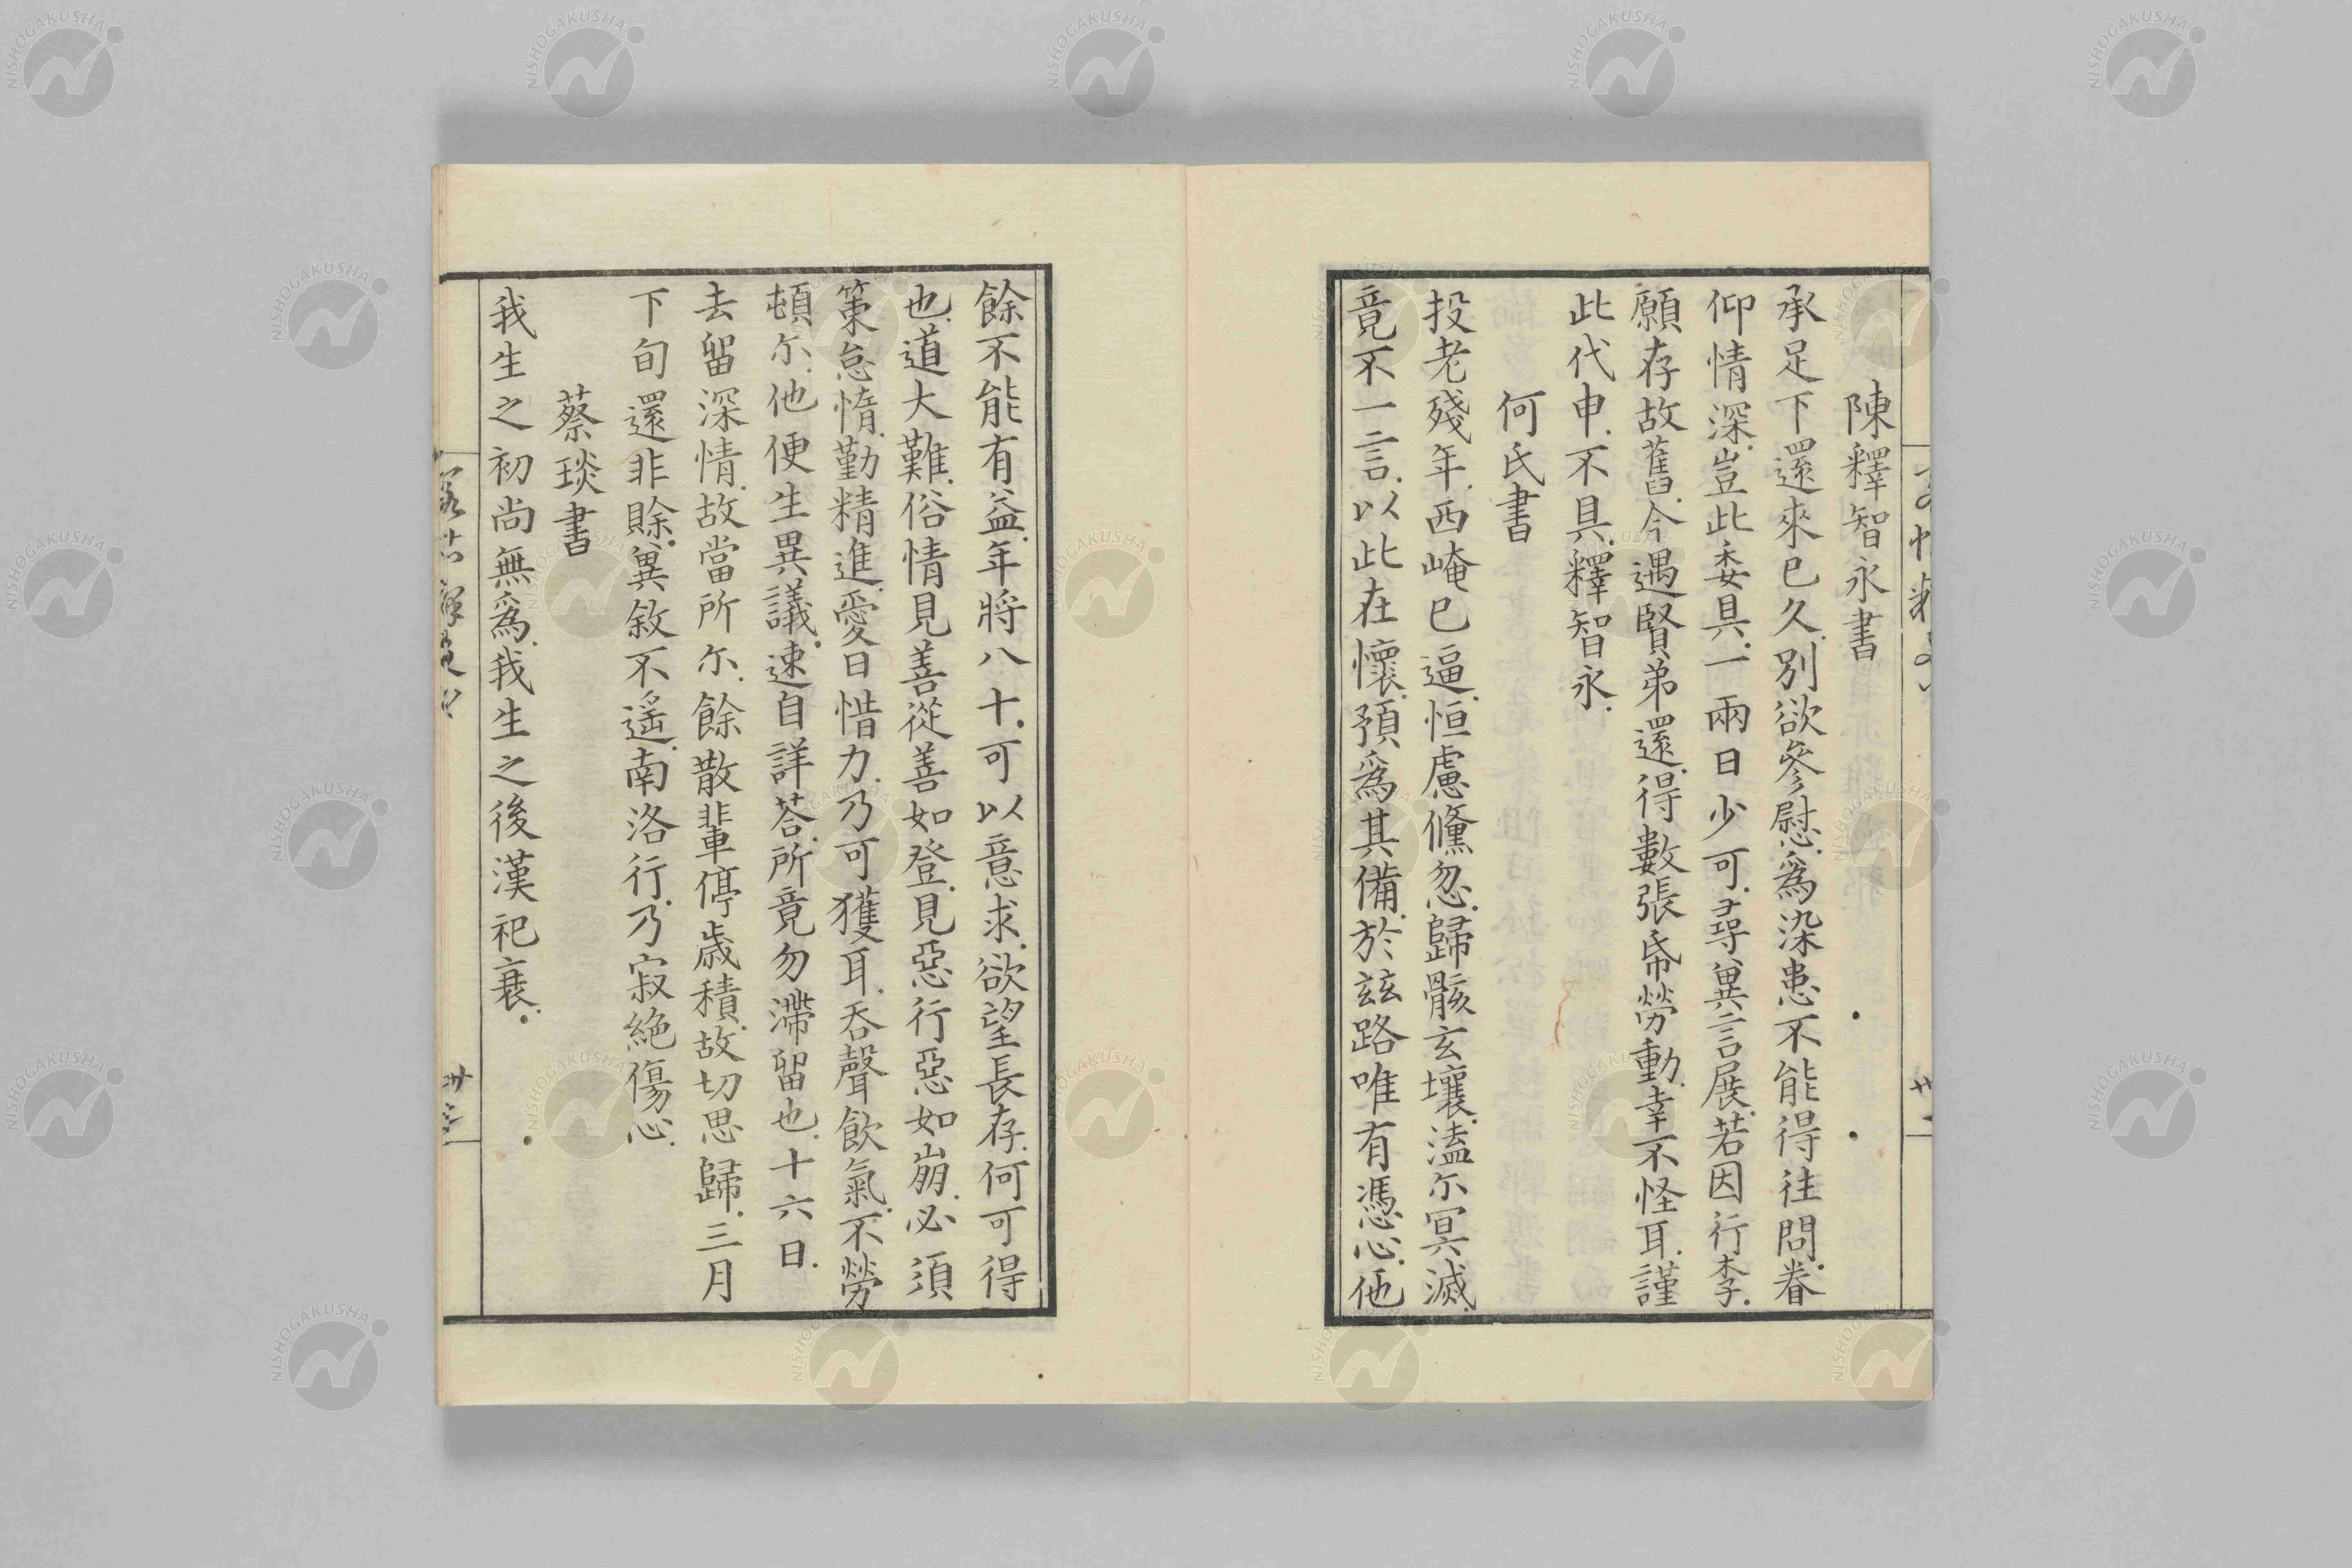 陳釋智永書
承足下還來已久.別欲參慰.爲染患不能得往問.眷
仰情深.豈此委具.一兩日少可.尋冀言展.若因行李.
願存故舊.今遇賢弟還.得數張帋勞動.幸不怪耳.謹
此代申.不具.釋智永.
何氏書
投老殘年.西崦已逼.恒慮儵忽.歸骸玄壤.溘尓冥滅.
竟不一言.以此在懷.預爲其備.於玆路唯有憑心.他
餘不能有益.年將八十.可以意求.欲望長存.何可得
也.道大難.俗情見善從善如登.見惡行惡如崩.必須
策怠惰.勤精進.愛日惜力.乃可獲耳.吞聲飲氣.不勞
頓尓.他便生異議.速自詳荅.所竟勿滯留也.十六日.
去留深情.故當所尓.餘散輩停歲積.故切思歸.三月
下旬還非賒.冀敘不遥.南洛行.乃寂絶傷心.
蔡琰書
我生之初尚無爲.我生之後漢祀衰.
NISHOGAKUSHA